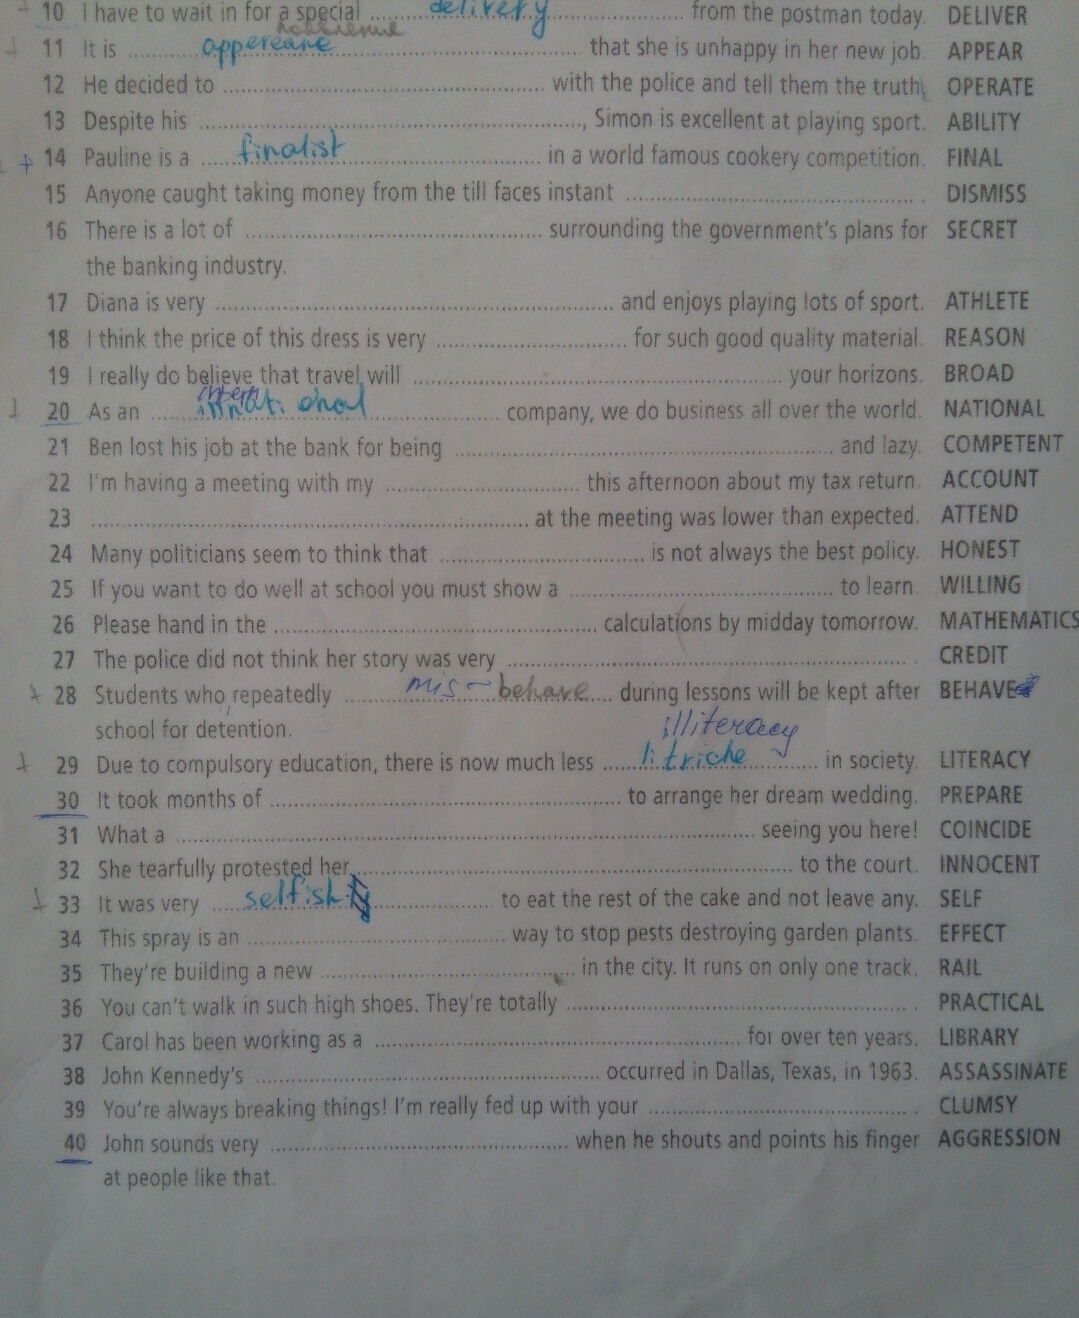 10 I have to wait in for a special ...... delivery ...... from the postman today. DELIVER
11 It is ...... appereane ...... that she is unhappy in her new job. APPEAR
12 He decided to ...... with the police and tell them the truth. OPERATE
13 Despite his ......, Simon is excellent at playing sport. ABILITY
+ 14 Pauline is a ...... finalist ...... in a world famous cookery competition. FINAL
15 Anyone caught taking money from the till faces instant ...... . DISMISS
16 There is a lot of ...... surrounding the government's plans for SECRET
the banking industry.
17 Diana is very ...... and enjoys playing lots of sport. ATHLETE
18 I think the price of this dress is very ...... for such good quality material. REASON
19 I really do believe that travel will ...... your horizons. BROAD
20 As an ...... national ...... company, we do business all over the world. NATIONAL
21 Ben lost his job at the bank for being ...... and lazy. COMPETENT
22 I'm having a meeting with my ...... this afternoon about my tax return. ACCOUNT
23 ...... at the meeting was lower than expected. ATTEND
24 Many politicians seem to think that ...... is not always the best policy. HONEST
25 If you want to do well at school you must show a ...... to learn. WILLING
26 Please hand in the ...... calculations by midday tomorrow. MATHEMATICS
27 The police did not think her story was very ...... . CREDIT
28 Students who repeatedly ...... mis-behave ...... during lessons will be kept after BEHAVE
school for detention.
illiteracy
29 Due to compulsory education, there is now much less ...... litriche ...... in society. LITERACY
30 It took months of ...... to arrange her dream wedding. PREPARE
31 What a ...... seeing you here! COINCIDE
32 She tearfully protested her ...... to the court. INNOCENT
33 It was very ...... selfish ...... to eat the rest of the cake and not leave any. SELF
34 This spray is an ...... way to stop pests destroying garden plants. EFFECT
35 They're building a new ...... in the city. It runs on only one track. RAIL
36 You can't walk in such high shoes. They're totally ...... . PRACTICAL
37 Carol has been working as a ...... for over ten years. LIBRARY
38 John Kennedy's ...... occurred in Dallas, Texas, in 1963. ASSASSINATE
39 You're always breaking things! I'm really fed up with your ...... . CLUMSY
40 John sounds very ...... when he shouts and points his finger AGGRESSION
at people like that.